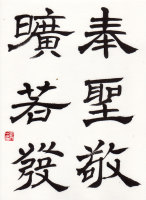 奉聖敬
曠若發